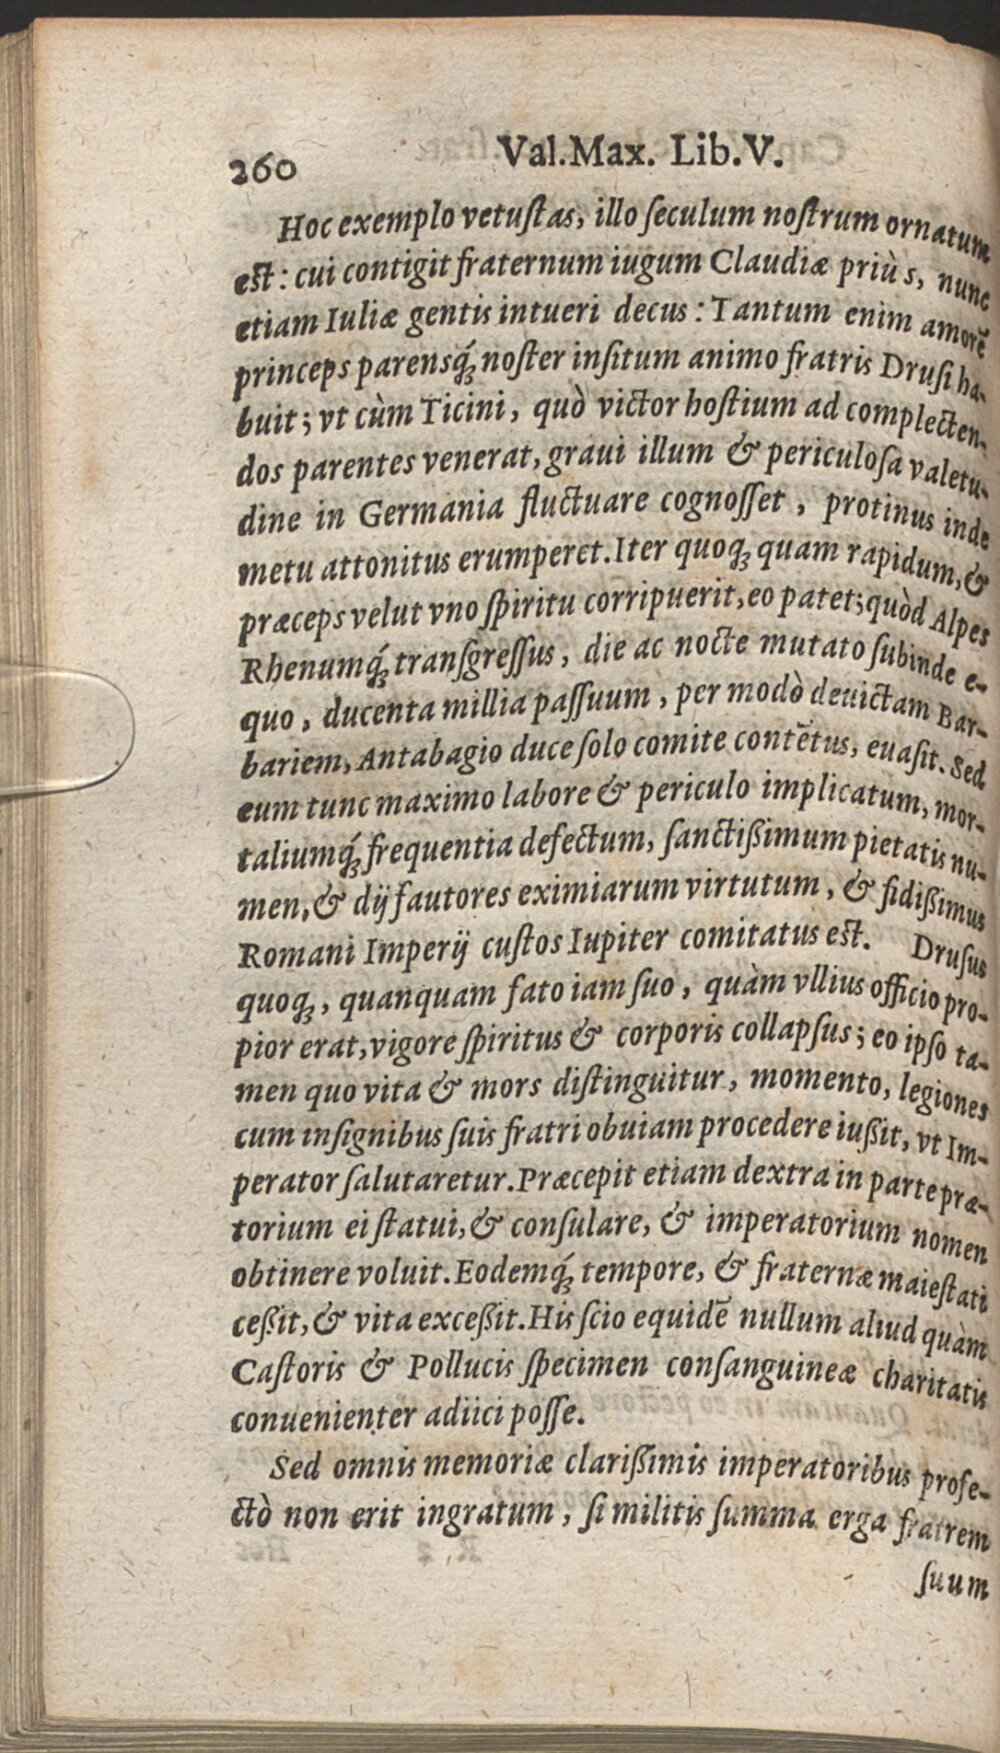 260 Val.Max. Lib.V.
Hoc exemplo vetuſtas, illo ſeculum noſtrum ornatum
eſt: cui contigit fraternum iugum Claudiæ priùs, nunc
etiam Iuliæ gentis intueri decus: Tantum enim amorẽ
princeps parensq́ꝫ noſter inſitum animo fratris Druſi ha-
buit; vt cùm Ticini, quò victor hoſtium ad complecten-
dos parentes venerat, graui illum & periculoſa valetu-
dine in Germania fluctuare cognoſſet, protinus inde
metu attonitus erumperet. Iter quoqꝫ quam rapidum, &
præceps velut vno ſpiritu corripuerit, eo patet; quòd Alpes
Rhenumq́ꝫ tranſgreſſus, die ac nocte mutato ſubinde e-
quo, ducenta millia paſſuum, per modò deuictam Bar-
bariem, Antabagio duce ſolo comite contẽtus, euaſit. Sed
eum tunc maximo labore & periculo implicatum, mor-
taliumq́ꝫ frequentia defectum, ſanctißimum pietatis nu-
men, & dij fautores eximiarum virtutum, & fidißimus
Romani Imperij cuſtos Iupiter comitatus eſt. Druſus
quoqꝫ, quanquam fato iam ſuo, quàm vllius officio pro-
pior erat, vigore ſpiritus & corporis collapſus; eo ipſo ta-
men quo vita & mors diſtinguitur, momento, legiones
cum inſignibus ſuis fratri obuiam procedere iußit, vt Im-
perator ſalutaretur. Præcepit etiam dextra in parte præ-
torium ei ſtatui, & conſulare, & imperatorium nomen
obtinere voluit. Eodemq́ꝫ tempore, & fraternæ maieſtati
ceßit, & vita exceßit. His ſcio equidẽ nullum aliud quàm
Caſtoris & Pollucis ſpecimen conſanguineæ charitatis
conuenienter adiici poſſe.
Sed omnis memoriæ clarißimis imperatoribus profe-
ctò non erit ingratum, ſi militis ſumma erga fratrem
ſuum